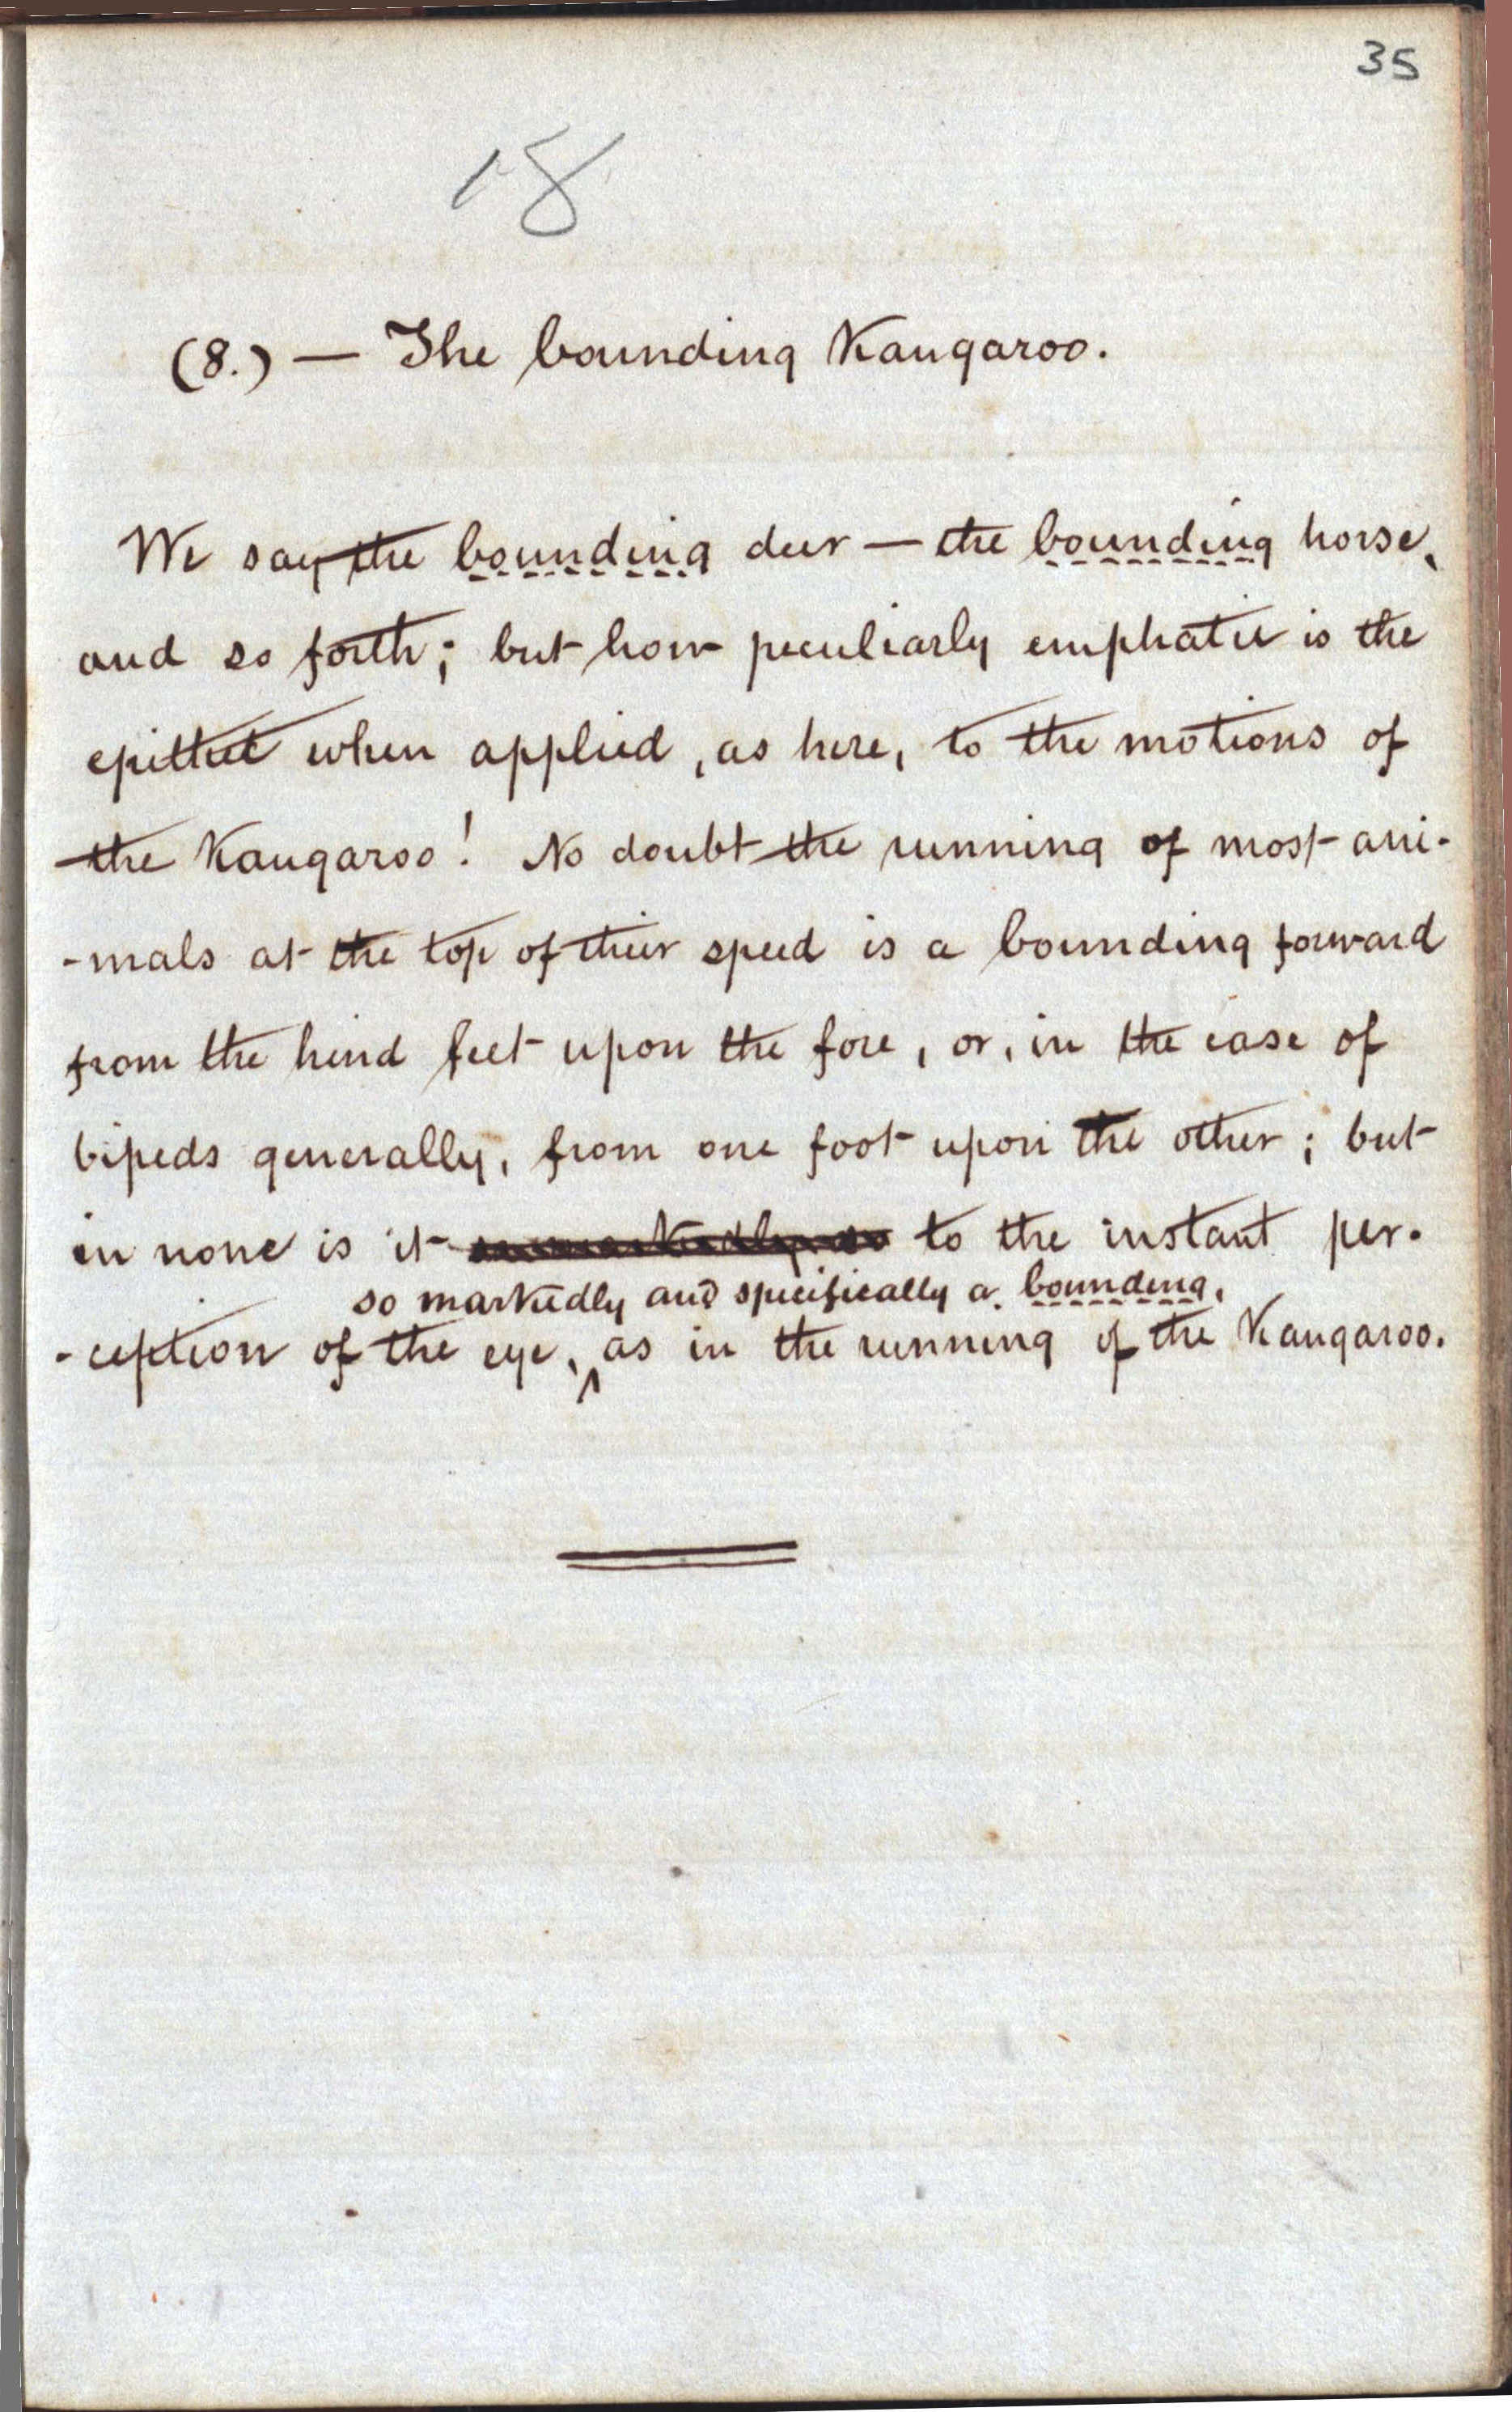 35
18
(8.) — The bounding Kangaroo.
We say the bounding deer — the bounding horse,
and so forth; but how peculiarly emphatic is the
epithet when applied, as here, to the motions of
the Kangaroo! No doubt the running of most ani-
-mals at the top of their speed is a bounding forward
from the hind feet upon the fore, or, in the case of
bipeds generally, from one foot upon the other; but
in none is it so markedly so to the instant per-
so markedly and specifically a bounding,
-ception of the eye, ^ as in the running of the Kangaroo.